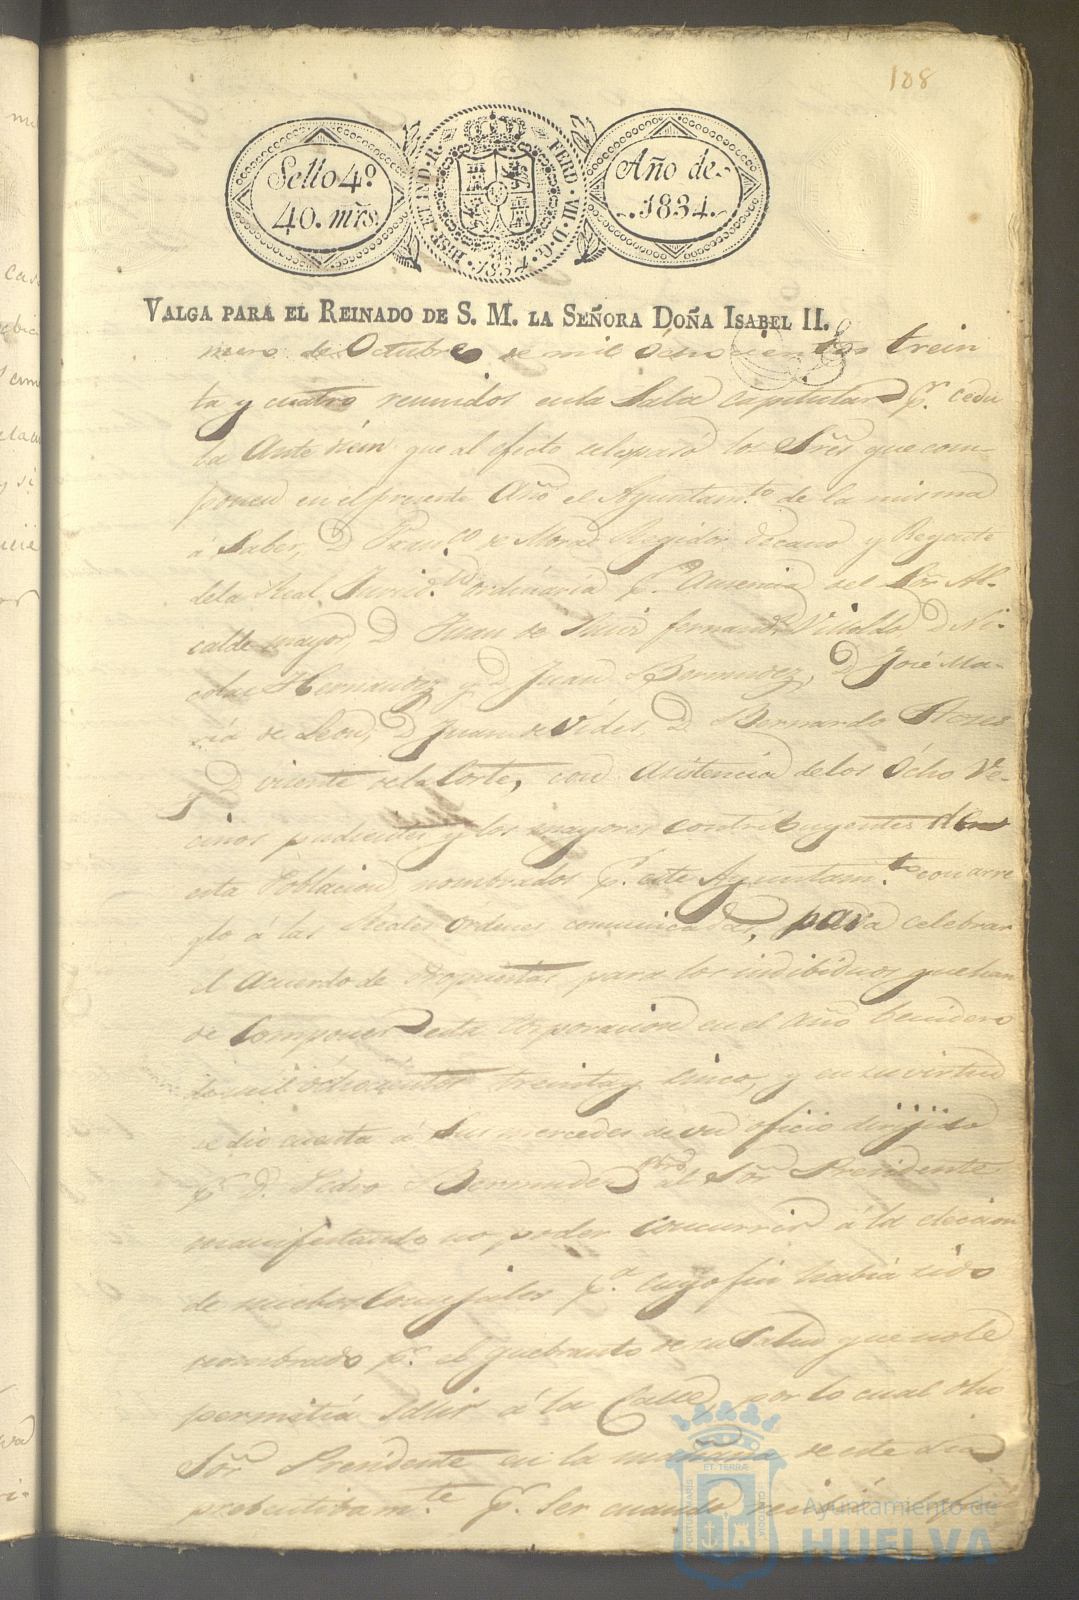 188
Sello 4º
40. mrs.
HISP. ET IND. R. FERD. VII. D. G. 1834.
Año de
1834.
VALGA PARA EL REINADO DE S. M. LA SEÑORA DOÑA ISABEL II.
mero de Octubre de mil ochocientos trein
ta y cuatro reunidos en la Sala Capitular pr. cedu
la Ante diem que al efecto se les pasó los Sres que com-
ponen en el presente Año el Ayuntamto de la misma
á Saber, D Franco de Mora Regidor decano y Regente
dela Real Jurisdon ordinaria pr. ausencia del Sor Al-
calde mayor, D Juan de fernandz D Ni-
colas Hernandez y D Juan Bermudez, D José Ma-
ria de Leon, D Juan de Vides, D Bernardo
y D vicente dela Corte, con asistencia delos Ocho Ve-
cinos pudientes y los mayores contribuyentes de
esta Poblacion nombrados pr. este Ayuntamto con arre
glo á las Reales Ordenes comunicadas, para celebrar
el Acuerdo de Propuestas para los indibiduos que han
de Componer esta Corporacion en el año benidero
de mil ochocientos treinta y cinco, y en su virtud
se dio cuenta á Sus mercedes de un oficio dirijido
pr D. Pedro Bermudez pbro al Sor Presidente
manifestando no poder concurrir á la eleccion
de nuebos Concejales pa. cuyo fin habia sido
nombrado pr. el quebranto de su Salud que no le
permitia Salir á la Calle, por lo cual dho
Sor Presidente en la mañana de este dia
probentibamte pr. Ser cuando recibió el ofi
PORTUS MARIS ET TERRAE CUSTODIA
Ayuntamiento de
HUELVA